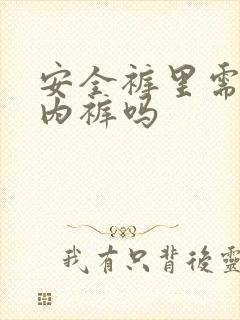 安全裤里需
内裤吗
我有只背後靈